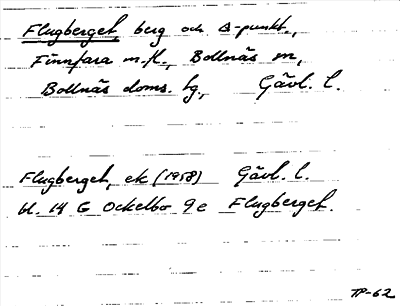 Flugberget, berg och Δ-punkt.,
Finnfara m.fl., Bollnäs m,
Bollnäs doms. tg., Gävl. l.
Flugberget, ek (1958) Gävl. l.
bl. 14 G Ockelbo 9e Flugberget.
TP-62